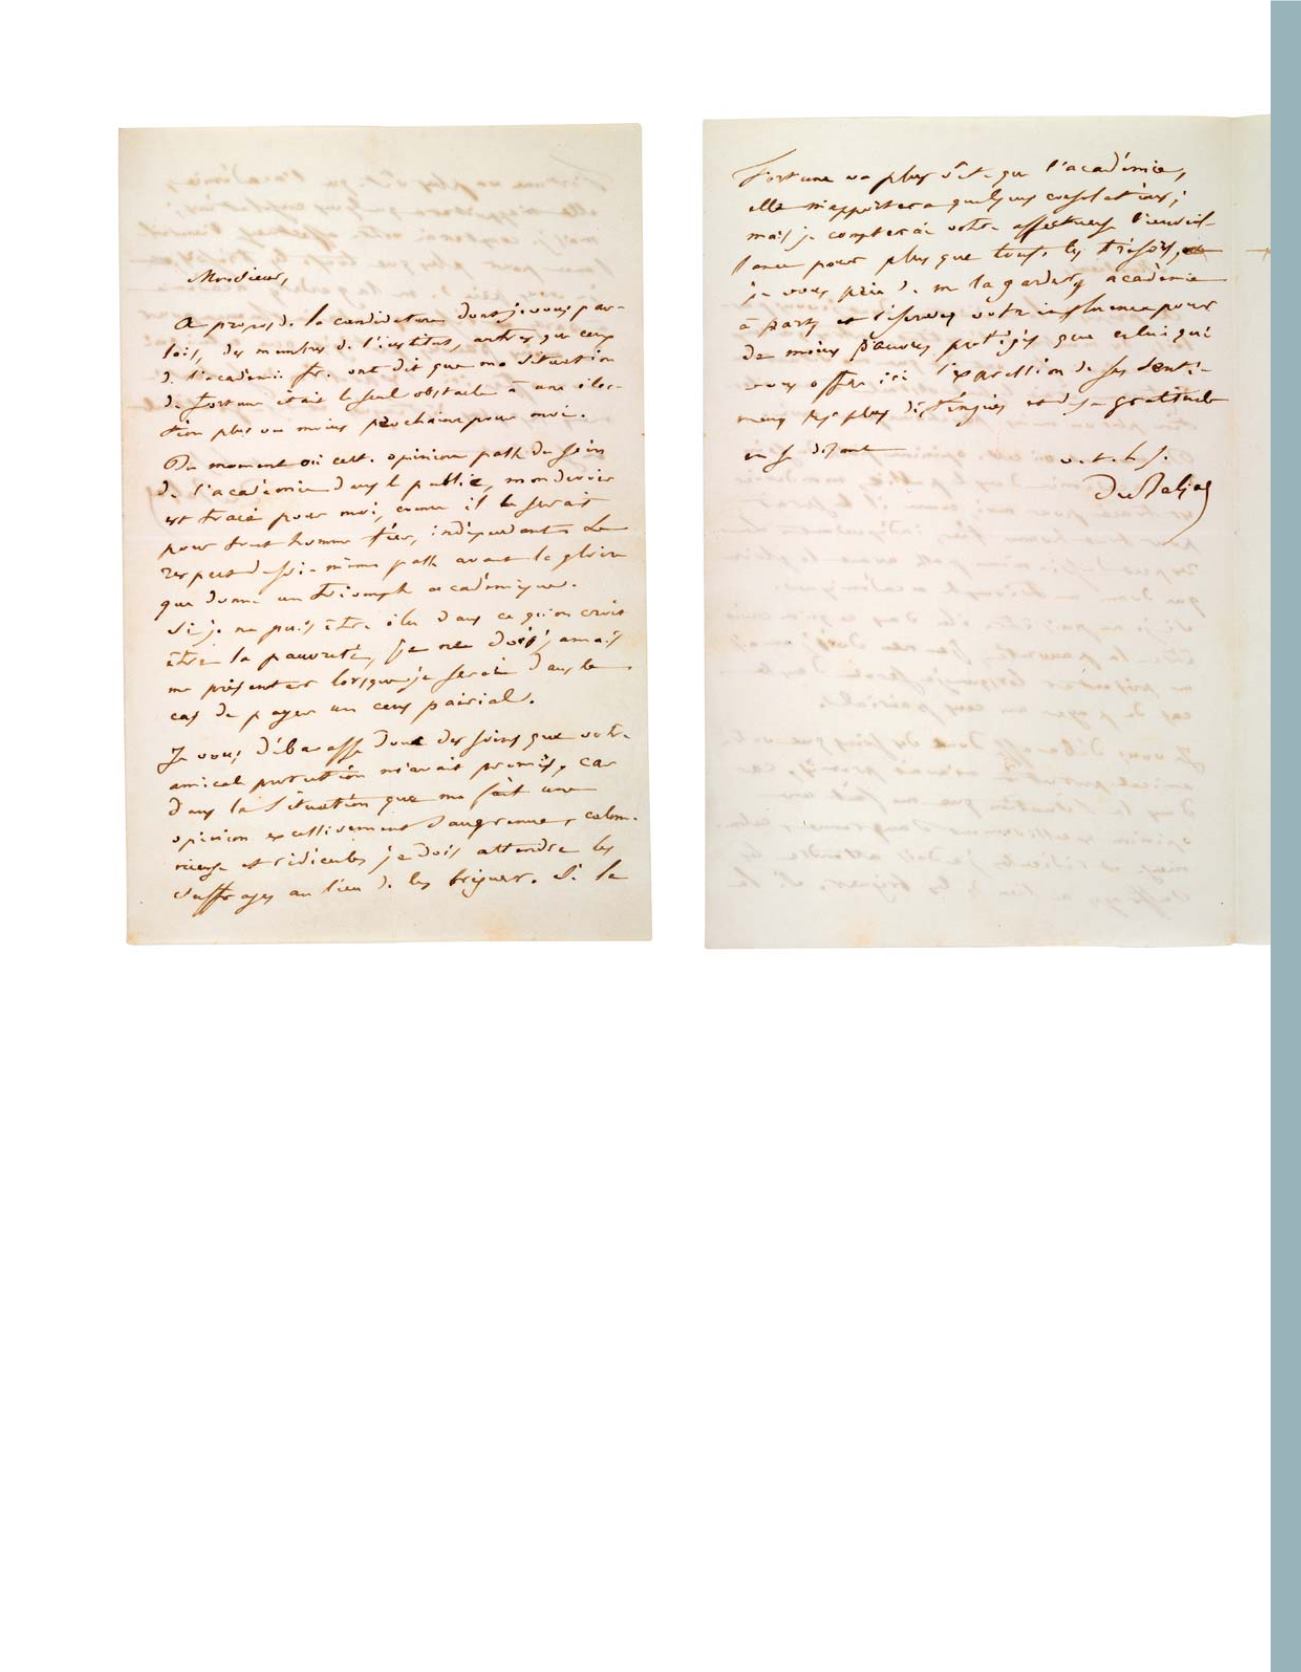 Monsieur,
A propos de la candidature dont je vous par-
lais, des membres de l'institut, autres que ceux
de l'académie fr. ont dit que ma situation
de fortune était le seul obstacle à une élec-
tion plus ou moins prochaine pour moi.
Du moment où cette opinion passe du sein
de l'académie dans le public, mon devoir
est tracé pour moi, comme il le serait
pour tout homme fier, indépendant. Le
respect de soi-même passe avant la gloire
que donne un triomphe académique.
Si je ne puis être élu dans ce qu'on croit
être la pauvreté, je ne dois jamais
me présenter lorsque je serai dans le
cas de payer un cens pairial.
Je vous débarasse donc des soins que votre
amicale protection m'avait promis, car
dans la situation que me fait une
opinion excessivement saugrenue, calom-
nieuse et ridicule, je dois attendre les
suffrages au lieu de les briguer. Si la
fortune va plus vite que l'académie,
elle m'apportera quelques consolations;
mais je compterai votre affectueuse bienveil-
lance pour plus que tous les trésors,
je vous prie de me la garder, académie
à part, et réservez votre influence pour
de moins pauvres protégés que celui qui
vous offre ici l'expression de ses senti-
mens les plus distingués et de sa gratitude
en se disant
v. t. h. s.
de Balzac